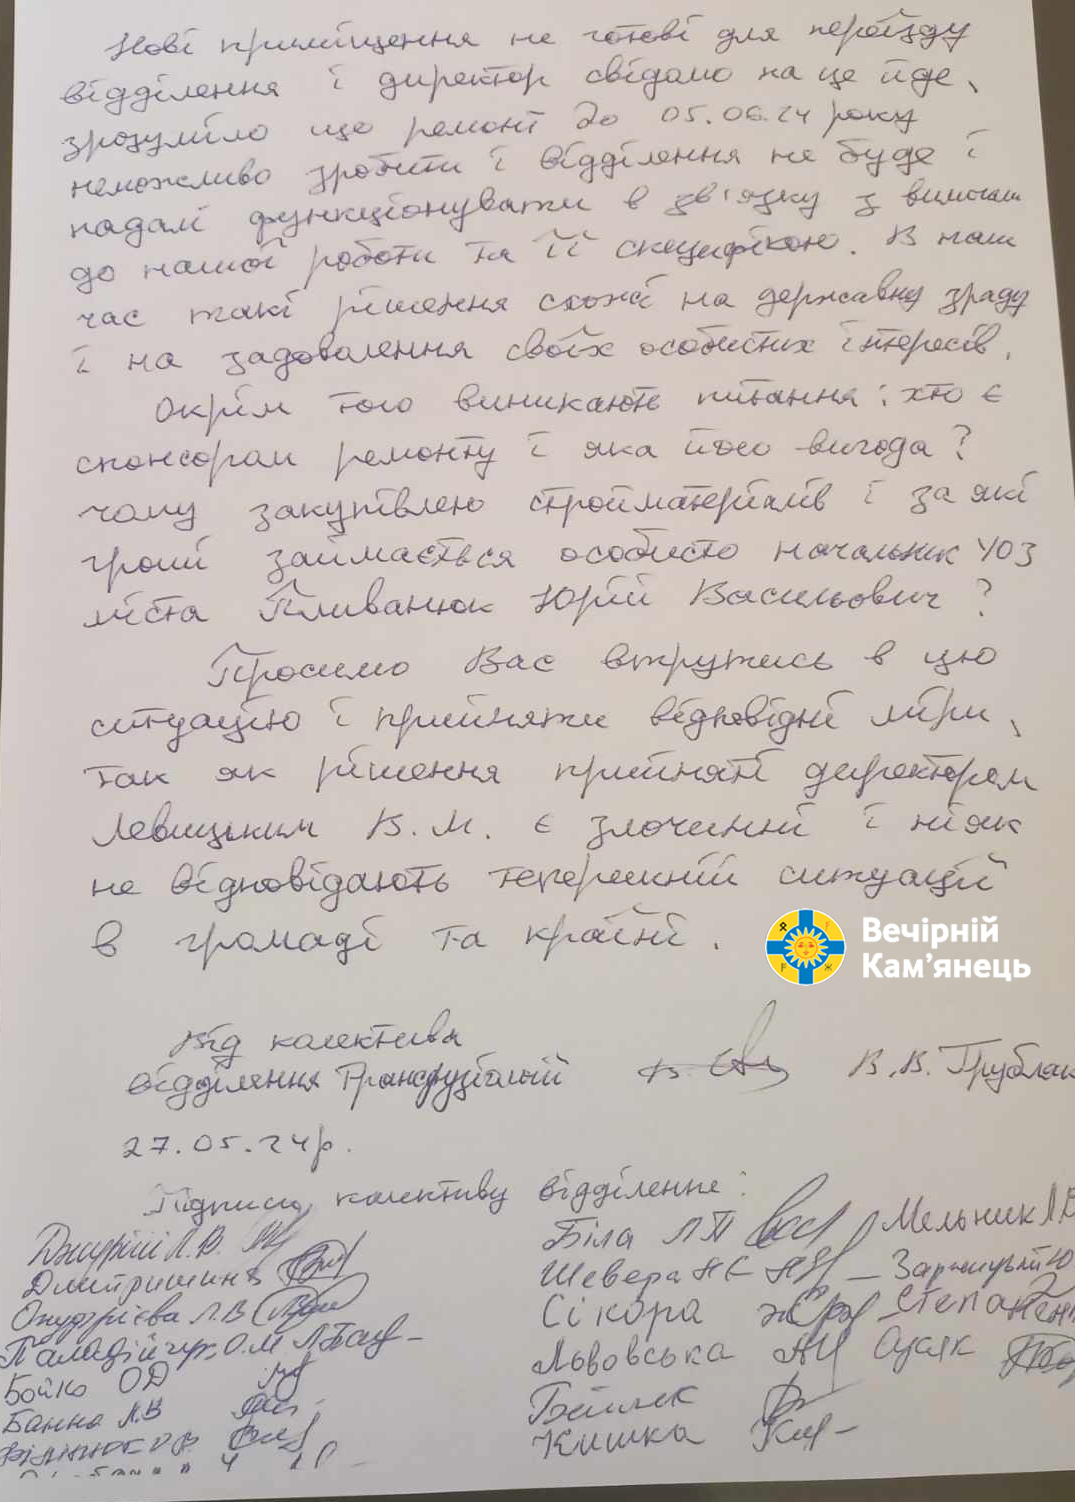 Нові приміщення не готові для переїзду
відділення і директор свідомо на це йде,
зрозуміло що ремонт до 05.06.24 року
неможливо зробити і відділення не буде і
надалі функціонувати в зв'язку з вимогами
до нашої роботи та її специфікою. В наш
час такі рішення схожі на державну зраду
і на задоволення своїх особистих інтересів.
Окрім того виникають питання: хто є
спонсорам ремонту і яка його вигода?
чому закупівлею стройматеріалів і за які
гроші займається особисто начальник УОЗ
міста Пливанюк Юрій Васильович?
Просимо Вас втрутись в цю
ситуацію і прийняти відповідні міри,
так як рішення прийняті директором
Левицьким В.М. є злочинні і ніяк
не відповідають теперішній ситуації
в громаді та країні.
Вечірній
Кам'янець
Від колектива
відділення Трансфузіології В. В. Трублак
27.05.24р.
Підписи колективу відділення:
Біла Л П Мельник Л В
Дмитришина Шевера Н Є
Онуфрієва Л.В Сікора Степа
Паладійчук О.М Львовська
Бойко О Д
Банна Л.В
Кишка